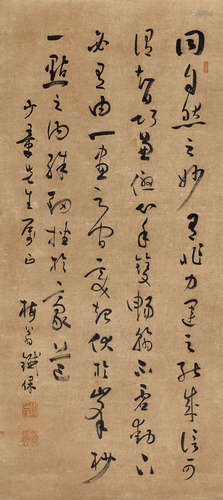 同自然之妙有非力運之能成信可
謂智巧兼優心手雙暢翰不虛動下
必有由一畫之間變起伏於峯杪
一點之內殊衄挫於豪芒
少章先生屬正
鐵保